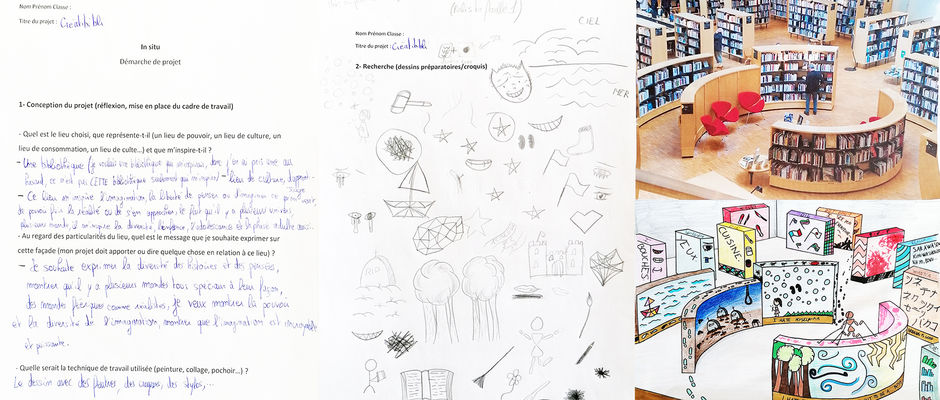 Nom Prénom Classe :
Titre du projet : Creatibibli
In situ
Démarche de projet
1- Conception du projet (réflexion, mise en place du cadre de travail)
- Quel est le lieu choisi, que représente-t-il (un lieu de pouvoir, un lieu de culture, un
lieu de consommation, un lieu de culte...) et que m'inspire-t-il ?
- Une bibliothèque (je voulais une bibliothèque qui m'inspirait, donc j'en ai pris une au
hasard, ce n'est pas CETTE bibliothèque seulement qui m'inspire) - lieu de culture,
- Ce lieu m'inspire l'imagination, la liberté de penser ou d'imaginer ce
de pouvoir fuir la réalité ou de s'en approcher, le fait qu'il y a plusieurs univers,
plusieurs monde, il m'inspire la diversité, l'enfance, l'adolescence et la phase adulte aussi.
- Au regard des particularités du lieu, quel est le message que je souhaite exprimer sur
cette façade (mon projet doit apporter ou dire quelque chose en relation à ce lieu) ?
- Je souhaite exprimer la diversité des histoires et des pensées,
montrer qu'il y a plusieurs mondes tous spéciaux à leur façon,
des mondes féeriques comme réalistes. Je veux montrer le pouvoir
et la diversité de l'imagination, montrer que l'imagination est incroyable
et puissante.
- Quelle serait la technique de travail utilisée (peinture, collage, pochoir...) ?
Le dessin avec des feutres, des crayons, des stylos,...
Nom Prénom Classe :
Titre du projet : Creatibibli
2- Recherche (dessins préparatoires/croquis)
CIEL
MER
BOUCHES
CUISINE